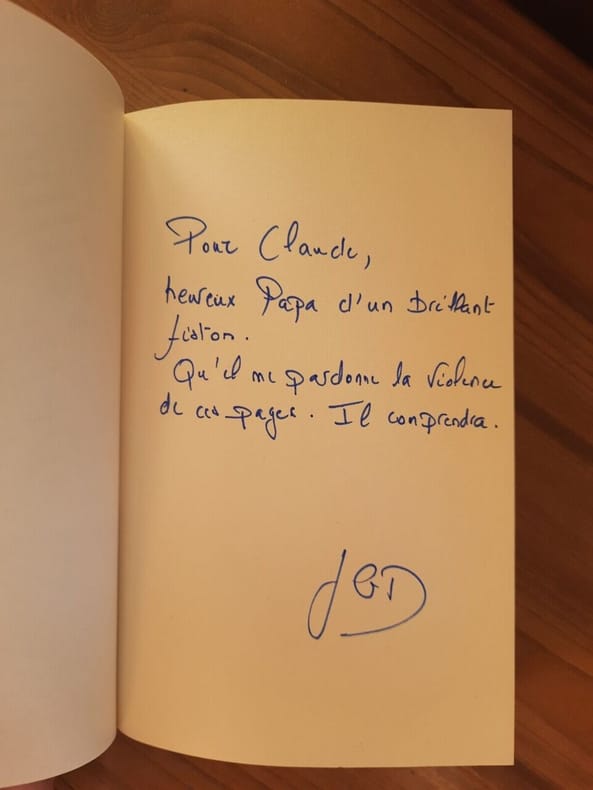 Pour Claude,
heureux Papa d'un brillant
fiston.
Qu'il me pardonne la violence
de ces pages. Il comprendra.
JGD